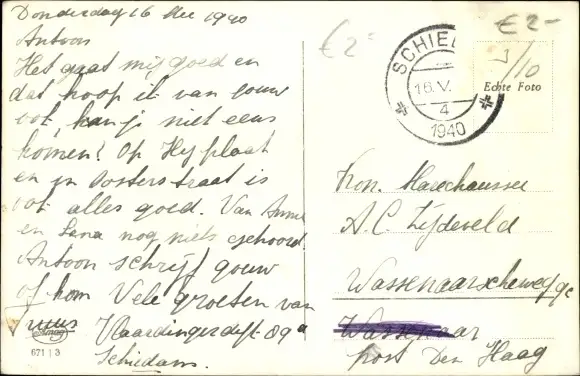 Donderdag 16 Mei 1940
Antoon
Het gaat mij goed en
dat hoop ik van jouw
ook, kan je niet eens
komen? Op Heyplaat
en in Oosterstraat is
ook alles goed. Van Annie
en Lena nog niets gehoord.
Antoon schrijf gouw
of kom Vele groeten van
Truus Vlaardingerdijk 89a
Schiedam.
671 | 3
€ 2-
€ 2-
3/10
SCHIED
16.V.
4
1940
Echte Foto
Kon. Marechaussee
A.C. Zijdeveld
Wassenaarscheweg
Wassenaar
post Den Haag